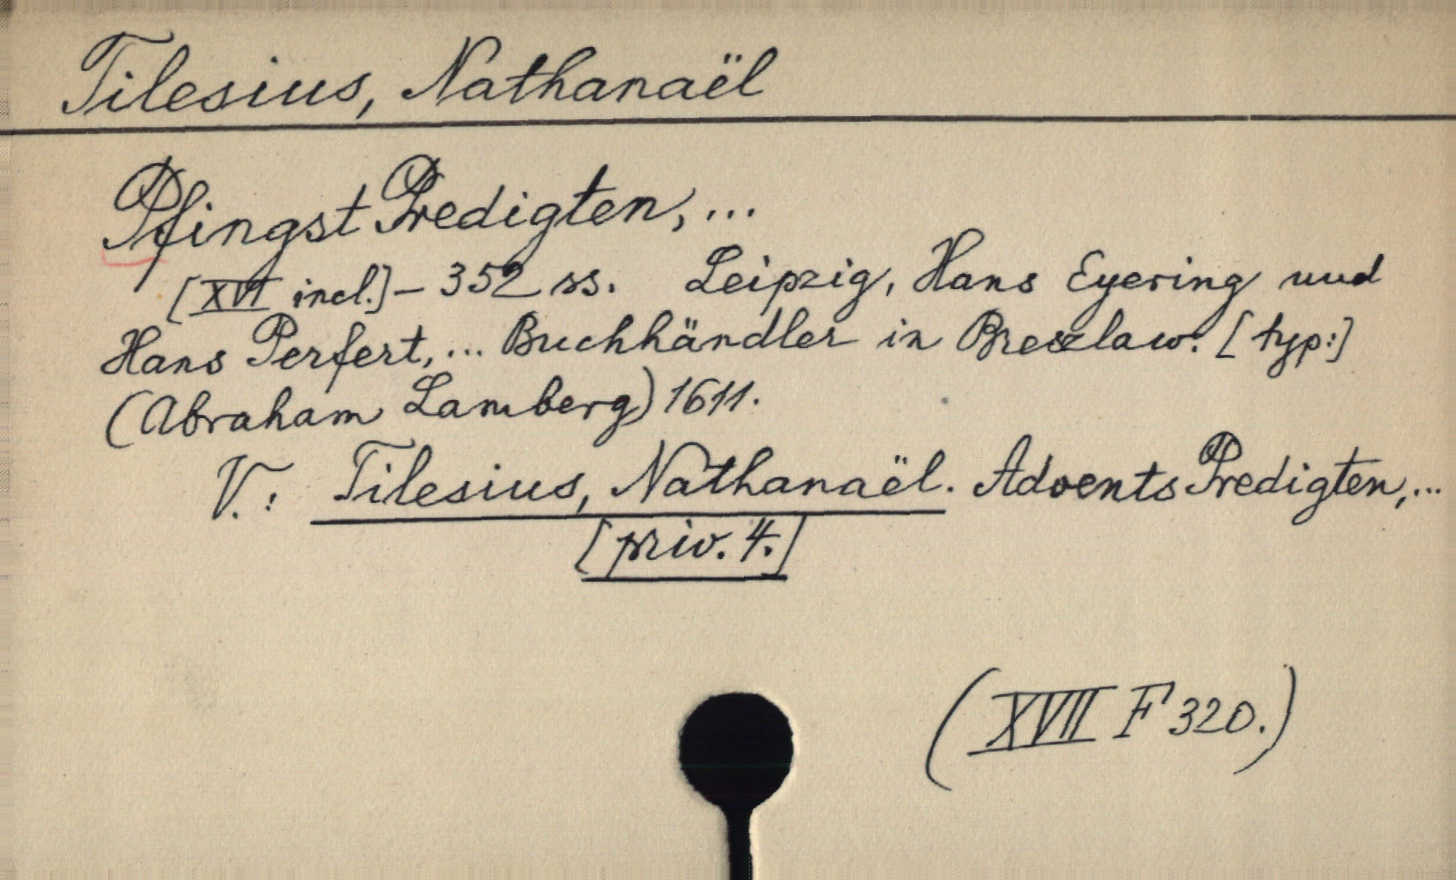 Tilesius, Nathanaël
Pfingst Predigten, ...
[XVI incl.] - 352 ss. Leipzig, Hans Eyering und
Hans Perfert, ... Buchhändler in Breszlaw. [typ:]
(Abraham Lamberg) 1611.
V.: Tilesius, Nathanaël. Advents Predigten, ...
[priv. 4.]
(XVII F 320.)